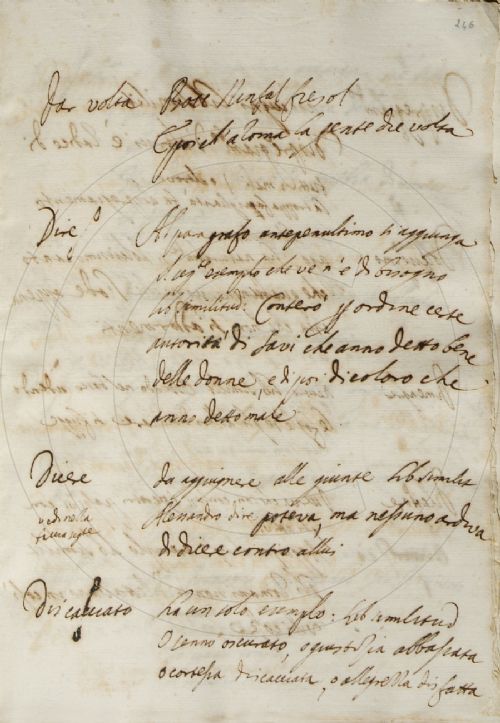 246
Dar volta
E poich'a Roma la gente die volta
Dire
Al paragrafo antepenultimo si aggiunga
esempio che ve n'è di bisogno
lib. similitud. Conterò ordine certe
autorità di savi che anno detto bene
delle donne, e di poi di coloro che
anno detto male
Dicere da aggiugnere alle giunte lib similit
vedi nella
Alessandro dire poteva, ma nessuno ardiva
di dicere contro allui
Discacciato ha un solo esempio: lib similitud
O senno oscurato, o giustizia abbassata
o cortesia discacciata, o allegrezza disfatta